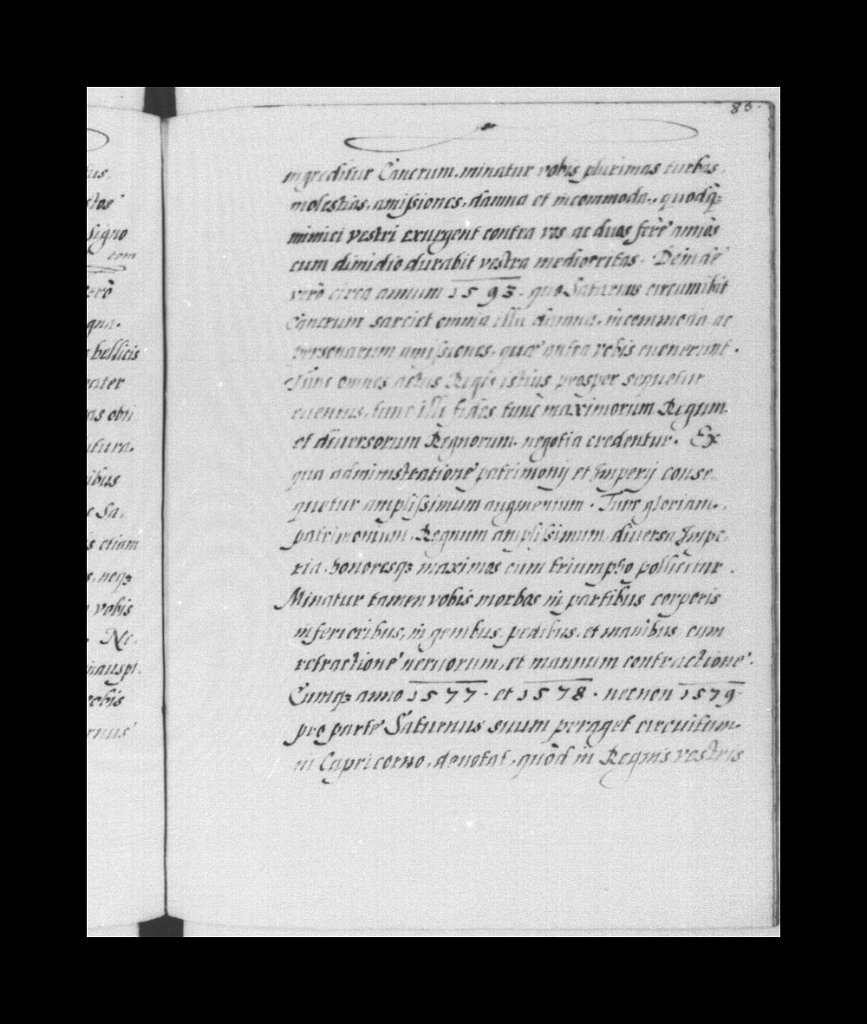 86.
ingreditur Cancrum, minatur vobis plurimas turbas,
molestias, amißiones, damna et incommoda, quodq₃
inimici vestri exurgent contra vos ac duos ferè annos
cum dimidio durabit vestra mediocritas. Deinde
verò circa annum 1593. quo Saturnus circumibit
Cancrum sarciet omnia illa damna, incommoda ac
personarum amißiones, quæ antea vobis evenerunt.
Tunc omnes actus Regis istius prosper sequetur
euentus, tunc illi fides, tunc maximorum Regum
et diuersorum Regnorum negotia credentur. Ex
qua administratione patrimonij et Imperij conse
quetur amplißimum augmentum. Tunc gloriam,
patrimonium, Regnum amplißimum, diuersa Impe
ria, honoresq₃ maximos cum triumpho pollicitur.
Minatur tamen vobis morbos in partibus corporis
inferioribus, in genibus, pedibus, et manibus cum
retractione neruorum, et manuum contractione.
Cumq₃ anno 1577. et 1578. necnon 1579
pro parte Saturnus suum peraget circuitum
in Capricorno, denotat, quòd in Regnis vestris
tus.
Signo
verò
bellicis
ibus
s Sa,
s etiam
s, neq₃
vobis
Ne
vobis